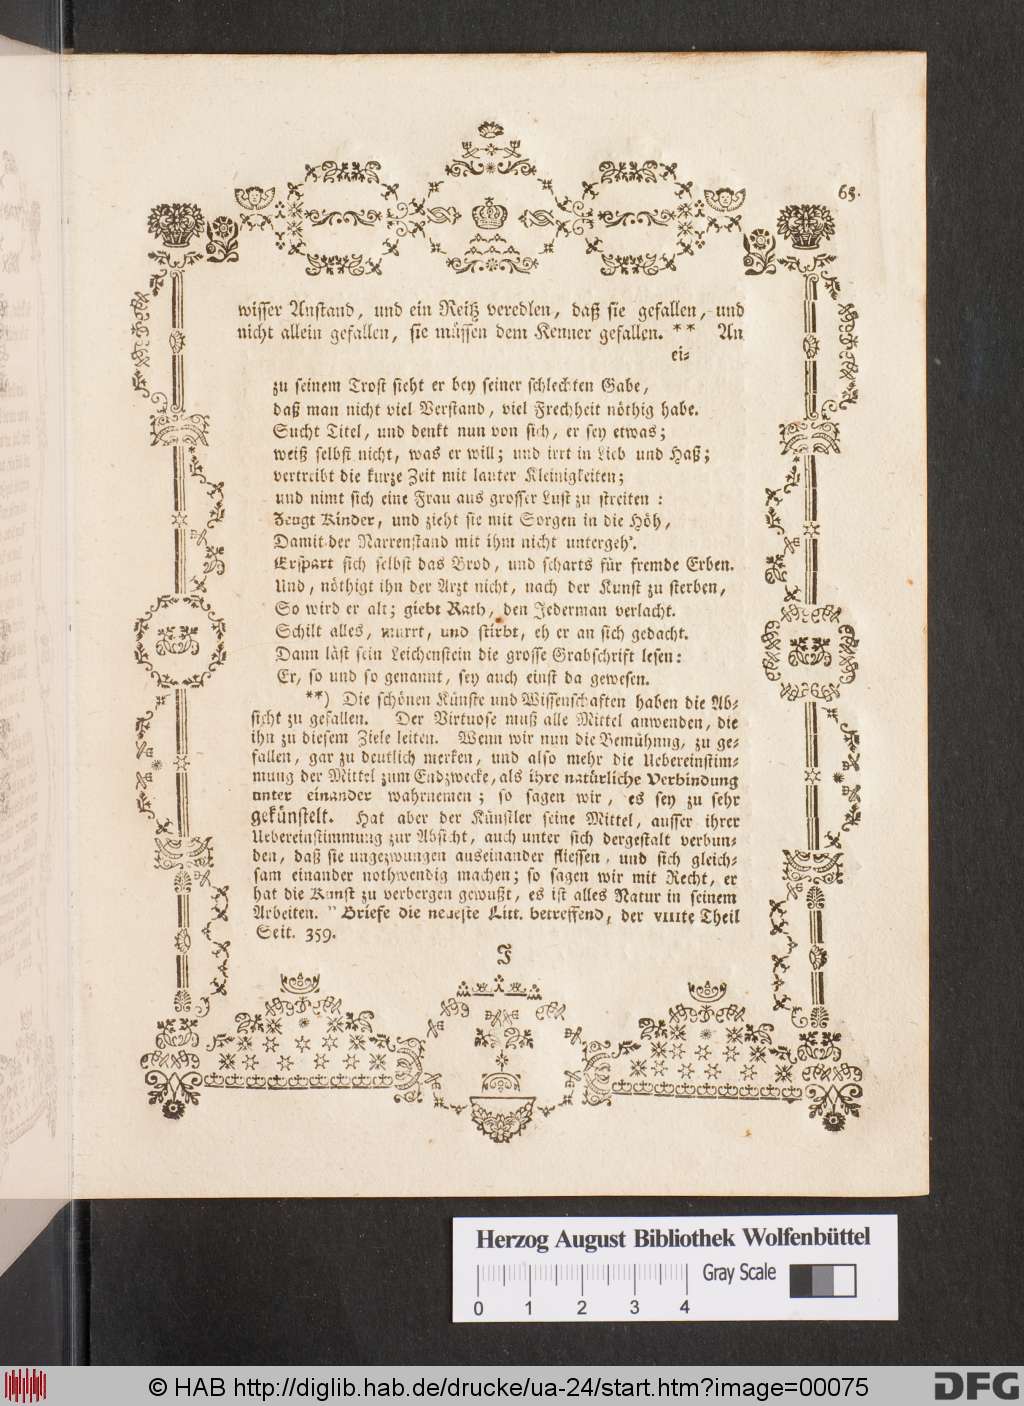 65.
wisser Anstand, und ein Reitz veredlen, daß sie gefallen, und
nicht allein gefallen, sie müssen dem Kenner gefallen. ** An
ei-
zu seinem Trost sieht er bey seiner schlechten Gabe,
daß man nicht viel Verstand, viel Frechheit nöthig habe.
Sucht Titel, und denkt nun von sich, er sey etwas;
weiß selbst nicht, was er will; und irrt in Lieb und Haß;
vertreibt die kurze Zeit mit lauter Kleinigkeiten;
und nimt sich eine Frau aus grosser Lust zu streiten:
Zeugt Kinder, und zieht sie mit Sorgen in die Höh,
Damit der Narrenstand mit ihm nicht untergeh'.
Erspart sich selbst das Brod, und scharts für fremde Erben.
Und, nöthigt ihn der Arzt nicht, nach der Kunst zu sterben,
So wird er alt; giebt Rath, den Jederman verlacht.
Schilt alles, murrt, und stirbt, eh er an sich gedacht.
Dann läst sein Leichenstein die grosse Grabschrift lesen:
Er, so und so genannt, sey auch einst da gewesen.
**) Die schönen Künste und Wissenschaften haben die Ab-
sicht zu gefallen. Der Virtuose muß alle Mittel anwenden, die
ihn zu diesem Ziele leiten. Wenn wir nun die Bemühnng, zu ge-
fallen, gar zu deutlich merken, und also mehr die Uebereinstim-
mung der Mittel zum Endzwecke, als ihre natürliche Verbindung
unter einander wahrnemen; so sagen wir, es sey zu sehr
gekünstelt. Hat aber der Künstler seine Mittel, ausser ihrer
Uebereinstimmung zur Absicht, auch unter sich dergestalt verbun-
den, daß sie ungezwungen auseinander fliessen, und sich gleich-
sam einander nothwendig machen; so sagen wir mit Recht, er
hat die Kunst zu verbergen gewußt, es ist alles Natur in seinem
Arbeiten. " Briefe die neueste Litt. betreffend, der VIIIte Theil
Seit. 359.
J
Herzog August Bibliothek Wolfenbüttel
Gray Scale
0 1 2 3 4
© HAB http://diglib.hab.de/drucke/ua-24/start.htm?image=00075
DFG